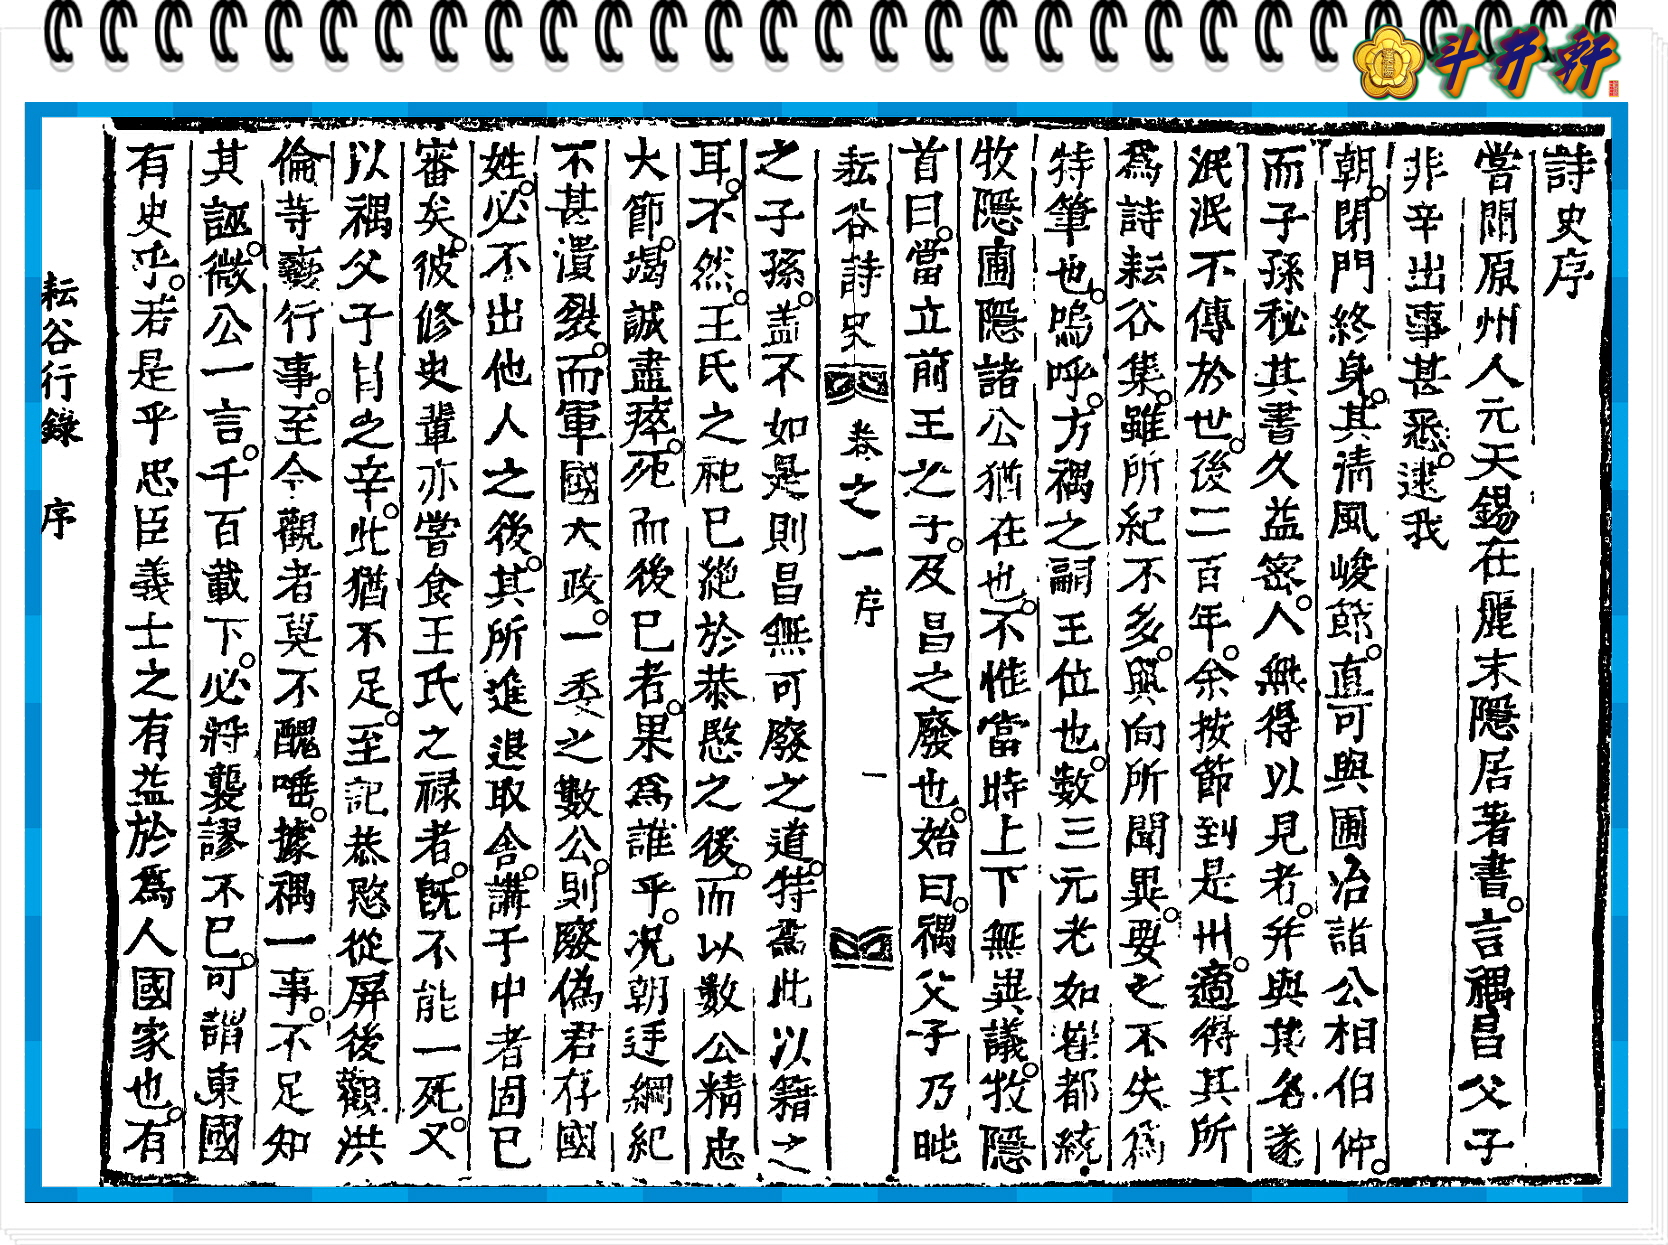 斗井軒
詩史序
嘗聞原州人元天錫在麗末隱居著書言禑昌父子
非辛出事甚悉逮我
朝閉門終身其淸風峻節直可與圃冶諸公相伯仲
而子孫秘其書久益密人無得以見者幷與其名遂
泯泯不傳於世後二百年余按節到是州適得其所
爲詩耘谷集雖所紀不多與向所聞異要之不失爲
特筆也嗚呼方禑之嗣王位也數三元老如崔都統
牧隱圃隱諸公猶在也不惟當時上下無異議牧隱
首曰當立前王之子及昌之廢也始曰禑父子乃旽
耘谷詩史 卷之一 序 一
之子孫盖不如是則昌無可廢之道特爲此以籍之
耳不然王氏之祀已絶於恭愍之後而以數公精忠
大節竭誠盡瘁死而後已者果爲誰乎况朝廷綱紀
不甚潰裂而軍國大政一委之數公則廢偽君存國
姓必不出他人之後其所進退取舍講于中者固已
審矣彼修史輩亦嘗食王氏之祿者旣不能一死又
以禑父子冐之辛此猶不足至記恭愍從屛後觀洪
倫等褻行事至令觀者莫不醜唾據禑一事不足知
其誣微公一言千百載下必將襲謬不已可謂東國
有史乎若是乎忠臣義士之有益於爲人國家也有
耘谷行錄 序